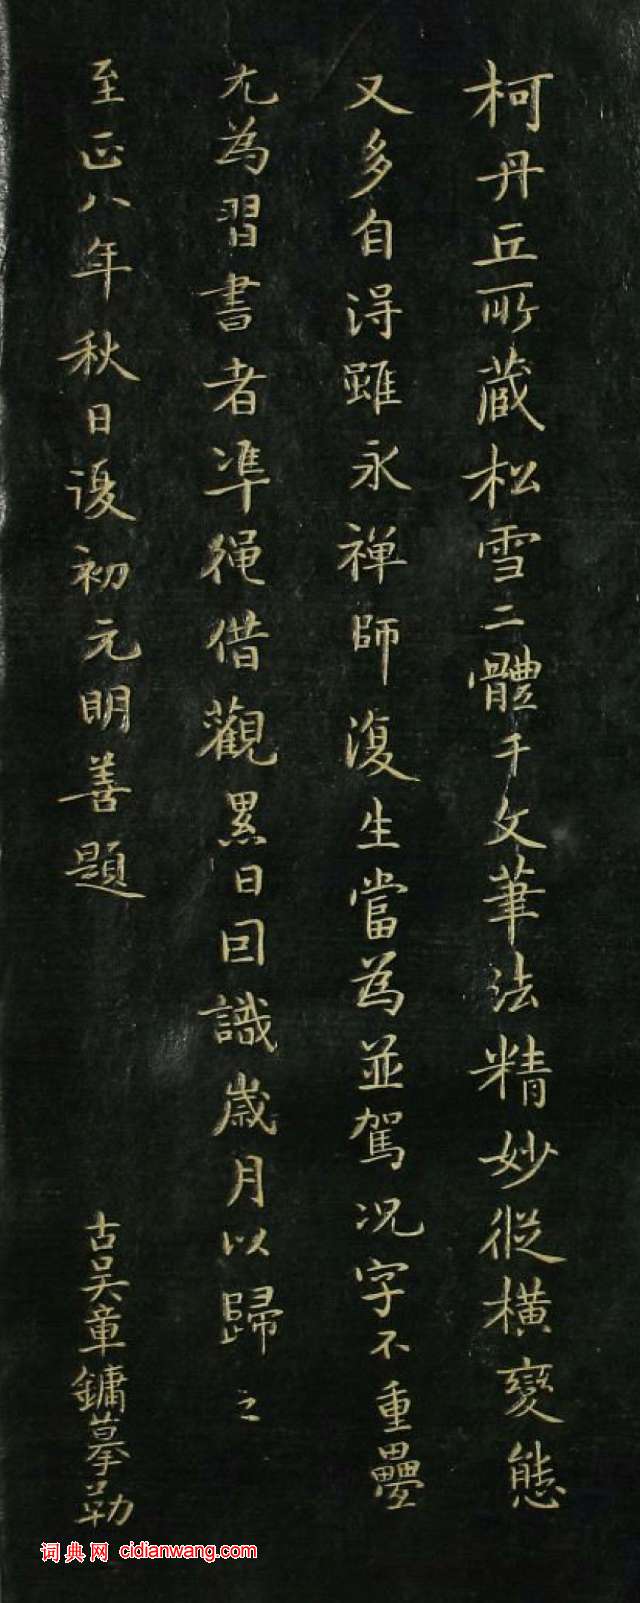 柯丹丘所藏松雪二體千文筆法精妙縱橫變態
又多自得雖永禪師復生當為並駕况字不重疊
尤為習書者準繩借觀累日因識歲月以歸之
至正八年秋日復初元明善題
古吴章鏞摹勒
词典网 cidianwang.com